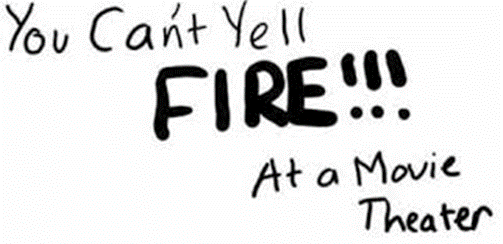 You Can't Yell
FIRE!!!
At a Movie
Theater